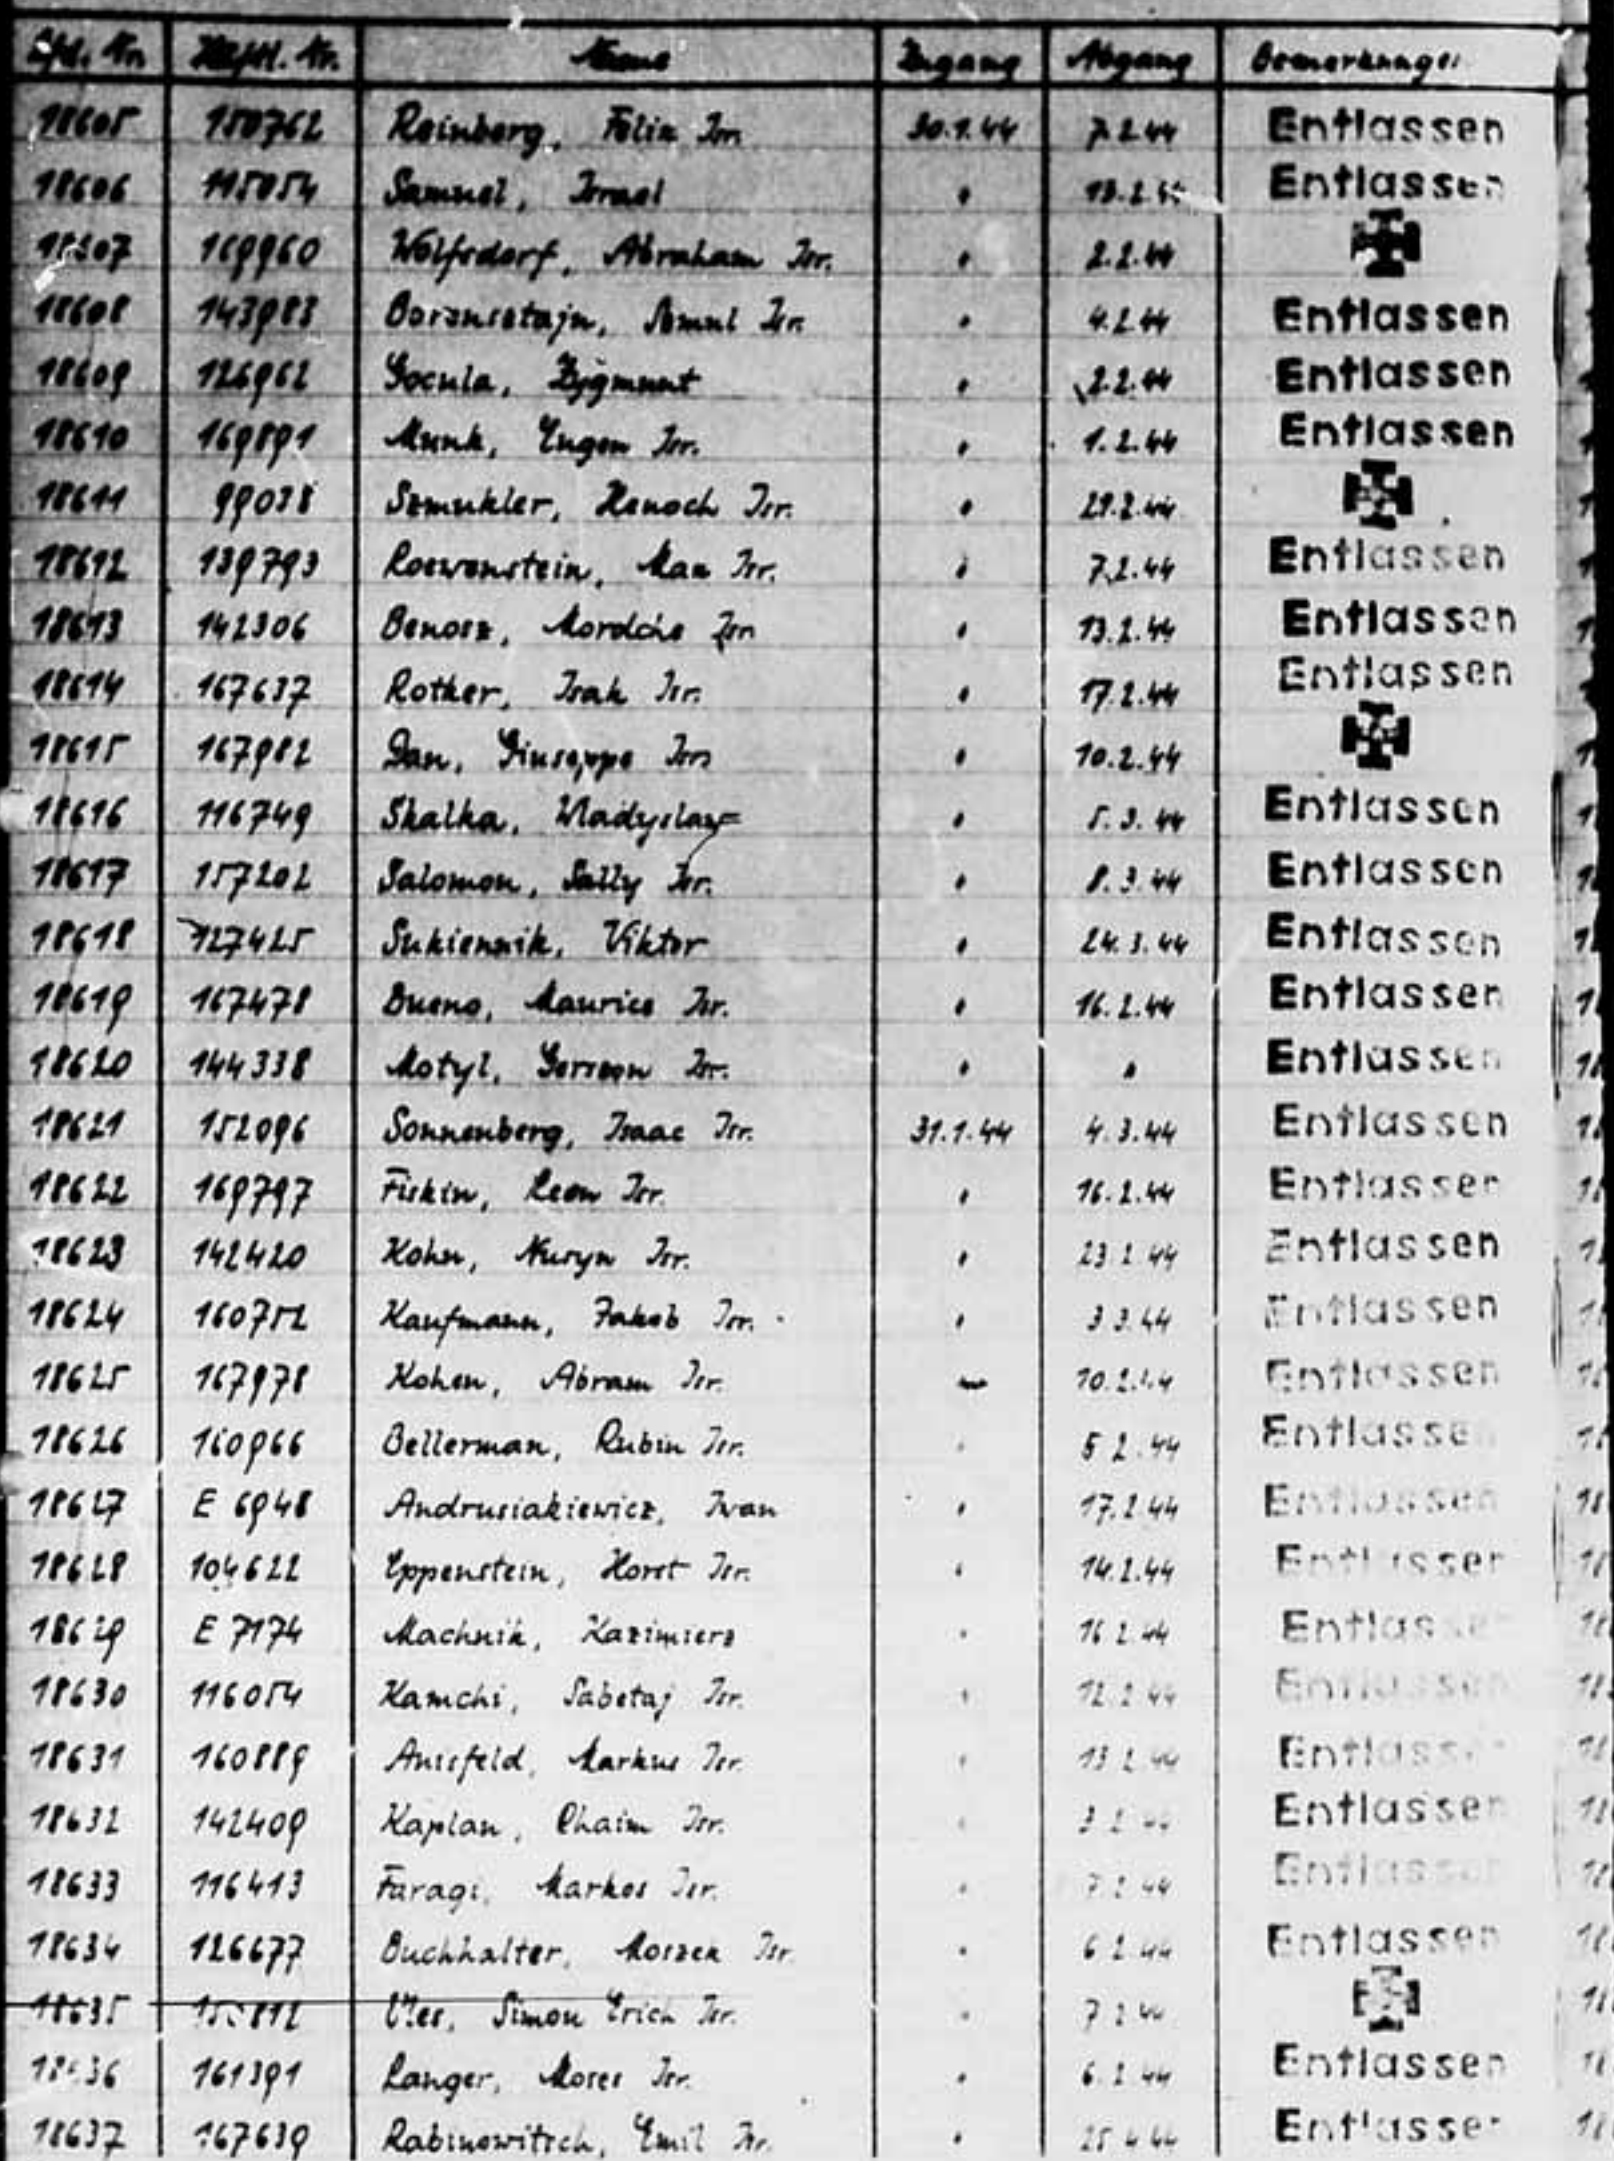 Lfd. Nr. Häftl. Nr. Name Zugang Abgang Bemerkungen
18605 150762 Reinberg, Felix Isr. 30.1.44 7.2.44 Entlassen
18606 115054 Samuel, Israel " 13.2. Entlassen
18607 169960 Wolfsdorf, Abraham Isr. " 2.2.44
18608 143983 Borensztajn, Szmul Isr. " 4.2.44 Entlassen
18609 126962 Gocula, Zygmunt " 2.2.44 Entlassen
18610 169891 Munk, Eugen Isr. " 1.2.44 Entlassen
18611 99038 Szmukler, Henoch Isr. " 29.2.44
18612 139793 Loewenstein, Max Isr. " 7.2.44 Entlassen
18613 142306 Benosz, Mordche Isr. " 13.2.44 Entlassen
18614 167637 Rother, Isak Isr. " 17.2.44 Entlassen
18615 167982 Dan, Giuseppe Isr. " 10.2.44
18616 116749 Skalka, Wladyslaw " 5.3.44 Entlassen
18617 157202 Salomon, Sally Isr. " 8.3.44 Entlassen
18618 127425 Sukiennik, Viktor " 24.3.44 Entlassen
18619 167478 Bueno, Maurice Isr. " 16.2.44 Entlassen
18620 144338 Motyl, Gerszon Isr. " " Entlassen
18621 152096 Sonnenberg, Isaac Isr. 31.1.44 4.3.44 Entlassen
18622 169797 Fiskin, Leon Isr. " 16.2.44 Entlassen
18623 142420 Kohn, Nusyn Isr. " 23.2.44 Entlassen
18624 160752 Kaufmann, Jakob Isr. " 3.3.44 Entlassen
18625 167978 Kohen, Abram Isr. " 10.2.44 Entlassen
18626 160966 Bellerman, Rubin Isr. " 5.2.44 Entlassen
18627 E 6948 Andrusiakiewicz, Iwan " 17.2.44 Entlassen
18628 104622 Eppenstein, Horst Isr. " 14.2.44 Entlassen
18629 E 7174 Machnik, Kazimierz " 16.2.44 Entlassen
18630 116054 Kamchi, Sabetaj Isr. " 12.2.44 Entlassen
18631 160889 Ansfeld, Markus Isr. " 13.2.44 Entlassen
18632 142409 Kaplan, Chaim Isr. " 3.2.44 Entlassen
18633 116413 Faragi, Markos Isr. " 7.2.44 Entlassen
18634 126677 Buchhalter, Moszek Isr. " 6.2.44 Entlassen
18635 Vles, Simon Erich Isr. " 7.2.44
18636 161391 Langer, Moses Isr. " 6.2.44 Entlassen
18637 167639 Rabinowitsch, Emil Isr. " 25.4.44 Entlassen